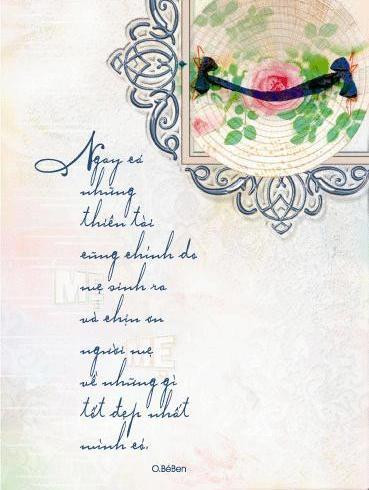 Ngay cả
những
thiên tài
cũng chính do
mẹ sinh ra
và chịu ơn
người mẹ
về những gì
tốt đẹp nhất
mình có.
O.BéBen
MẸ
MẸ